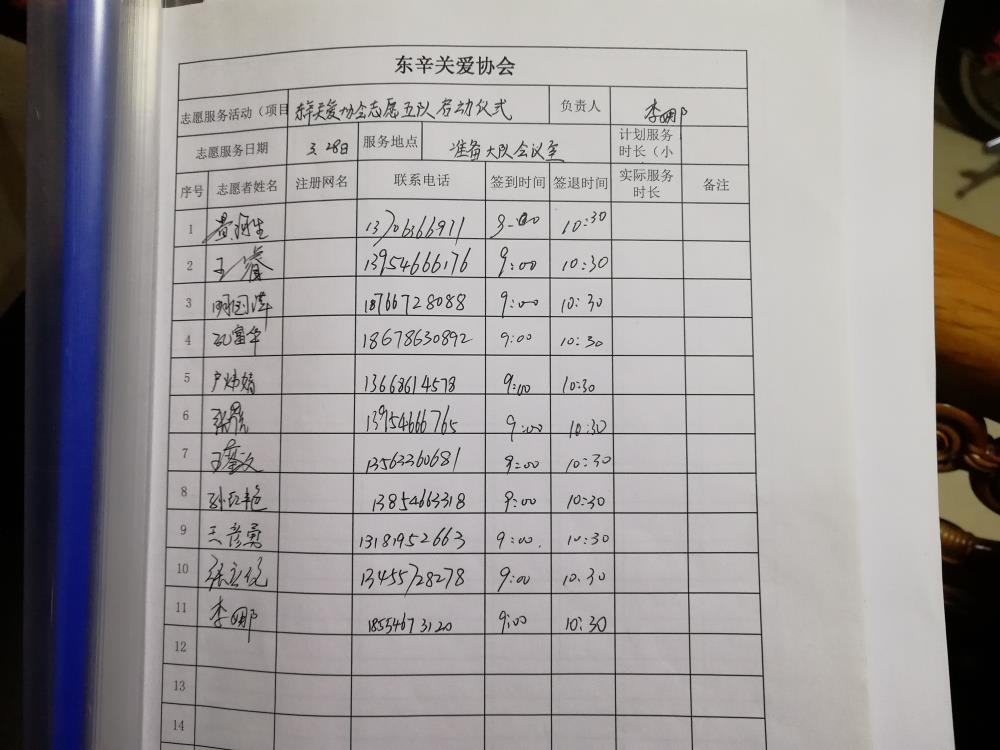 东辛关爱协会
志愿服务活动（项目 东辛关爱协会志愿五队启动仪式 负责人 李娜
志愿服务日期 3.28日 服务地点 准备大队会议室 计划服务时长（小
序号 志愿者姓名 注册网名 联系电话 签到时间 签退时间 实际服务时长 备注
1 13706366971 10:30
2 王睿 13954666176 9:00 10:30
3 18766728088 9:00 10:30
4 孔富华 18678630892 9:00 10:30
5 13668614578 9:00 10:30
6 13954666765 9:00 10:30
7 13563360681 9:00 10:30
8 孙红艳 13854663318 9:00 10:30
9 王彦勇 13181952663 9:00. 10:30
10 13455728278 9:00 10.30
11 李娜 18554673120 9:00 10:30
12
13
14